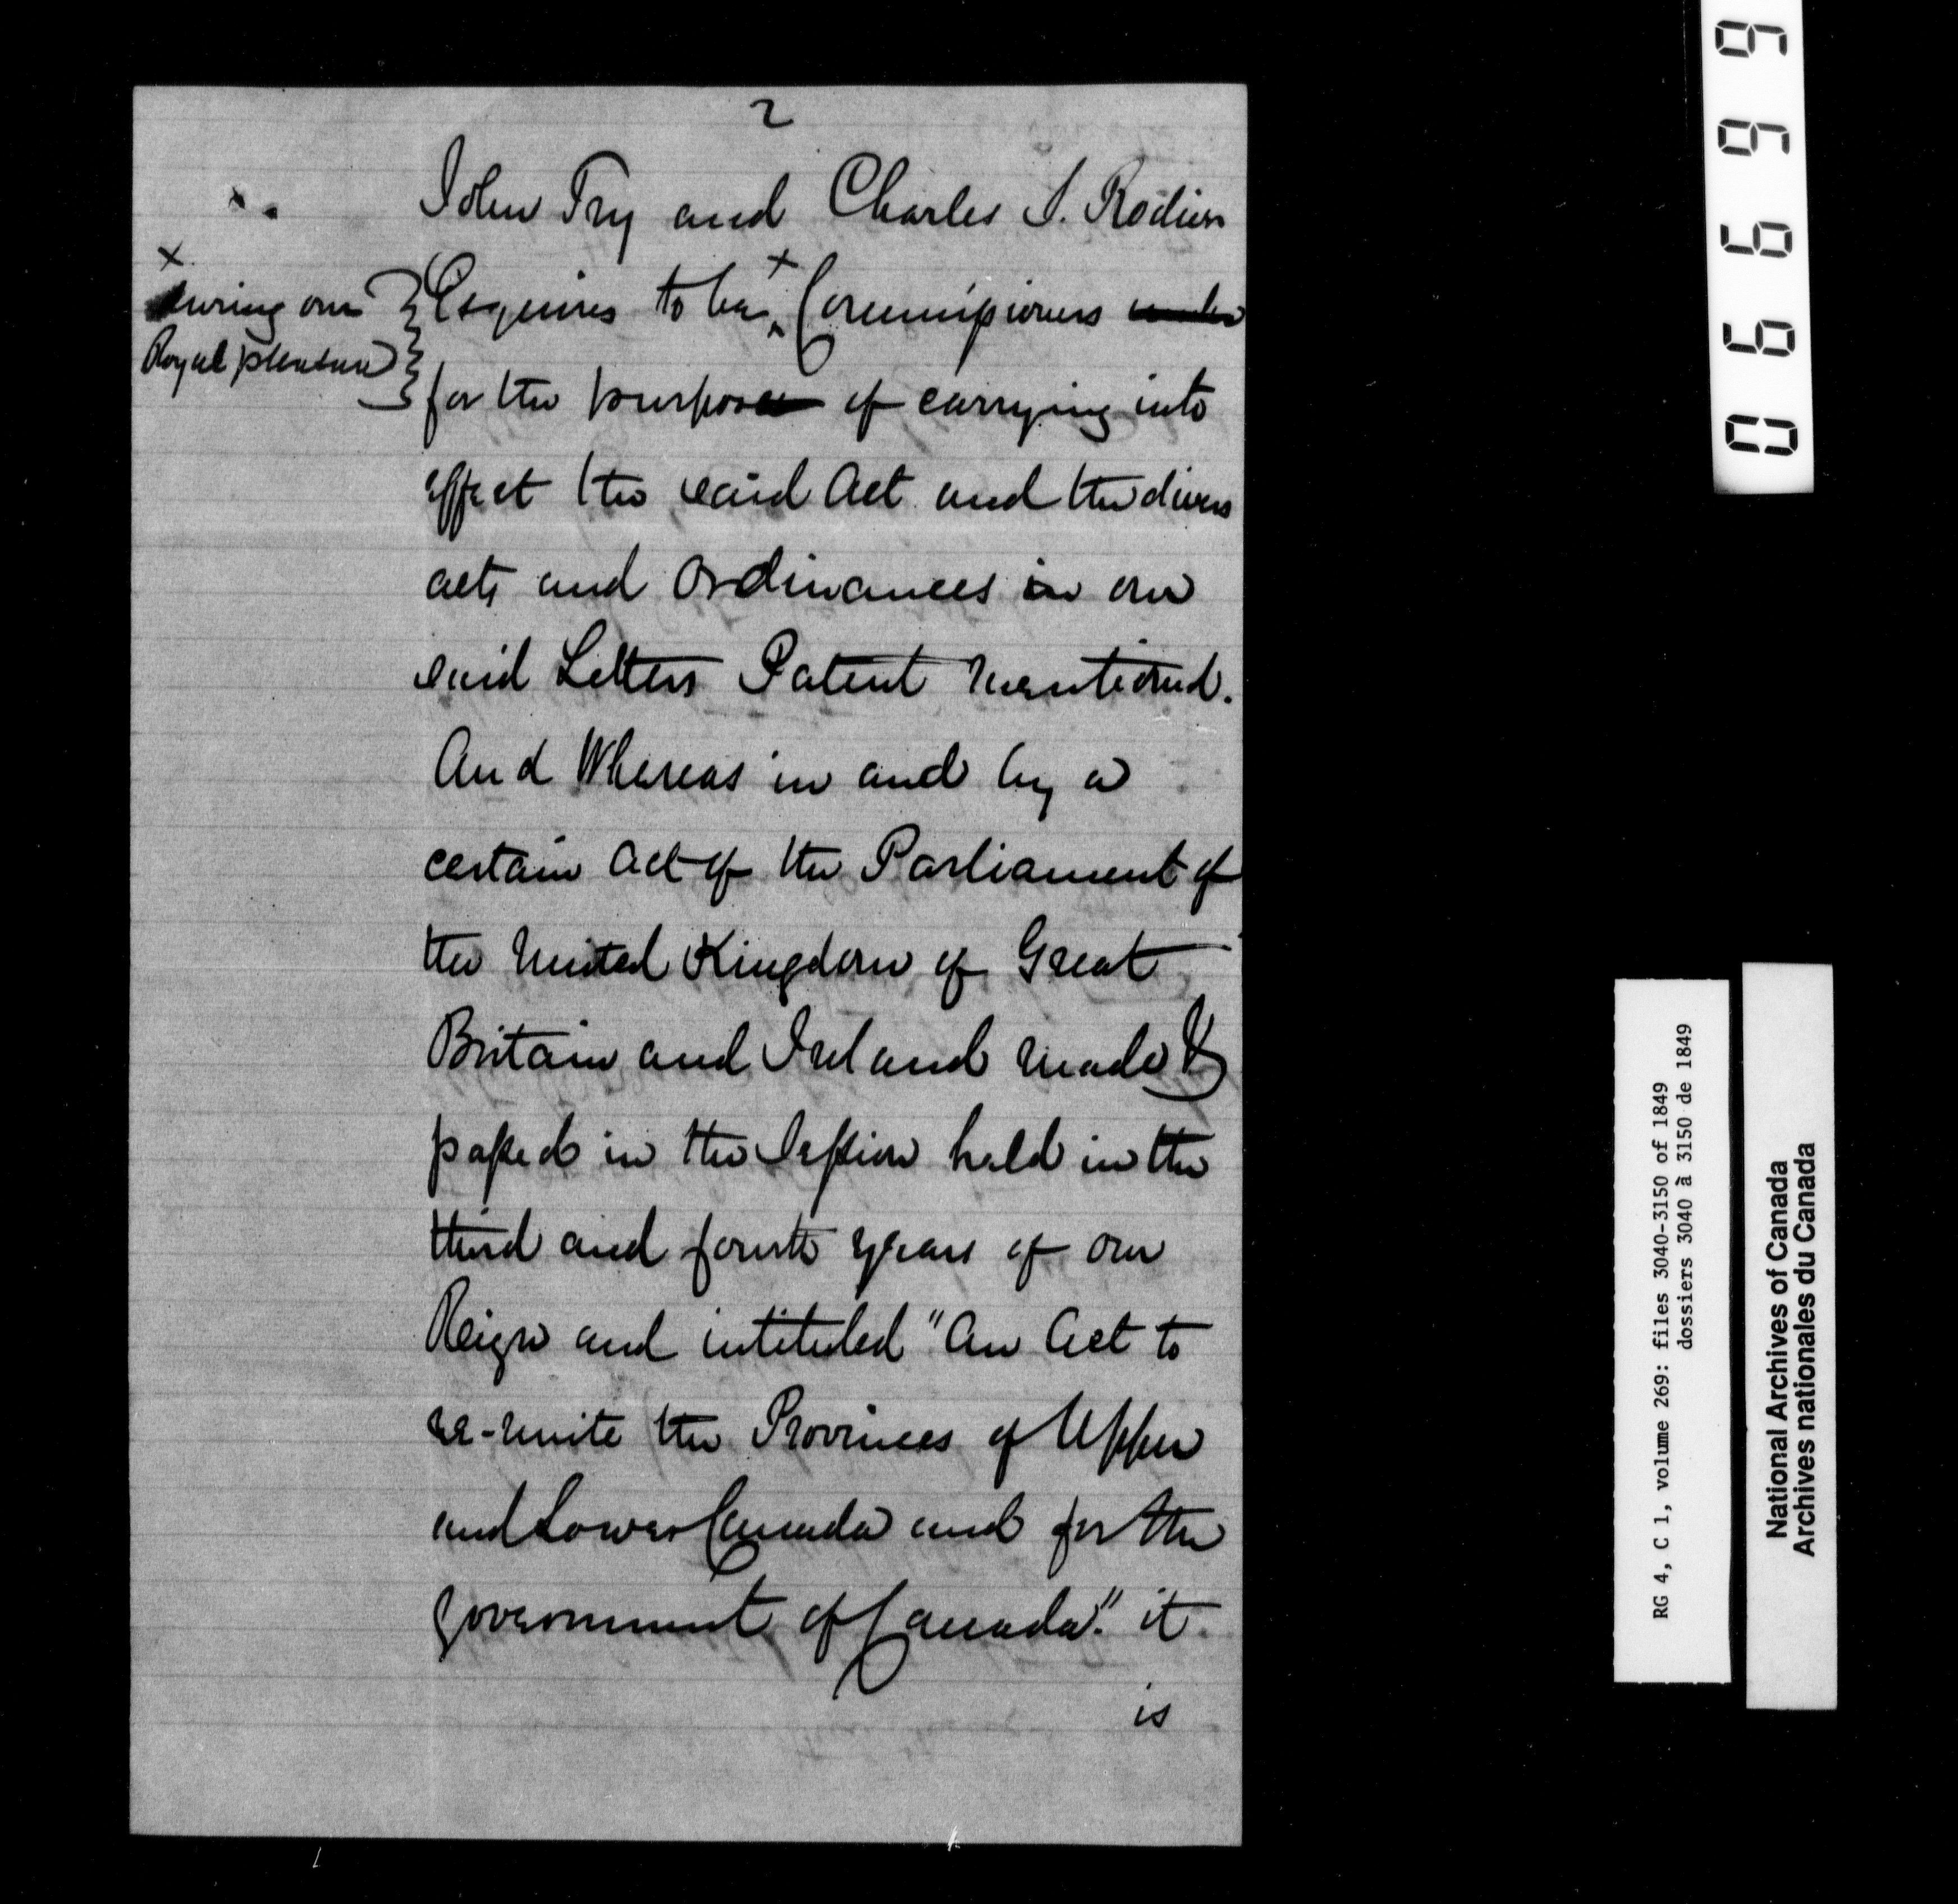 2
John Try and Charles S. Rodier
x
during our
Royal pleasure
Esquires to be x Commissioners under
for the purpose of carrying into
effect the said Act and the divers
acts and Ordinances in our
said Letters Patent mentioned.
And Whereas in and by a
certain Act of the Parliament of
the United Kingdom of Great
Britain and Ireland made &
passed in the Session held in the
third and fourth years of our
Reign and intituled "An Act to
re-unite the Provinces of Upper
and Lower Canada and for the
government of Canada." it
is
06699
RG 4, C 1, volume 269: files 3040-3150 of 1849
dossiers 3040 à 3150 de 1849
National Archives of Canada
Archives nationales du Canada